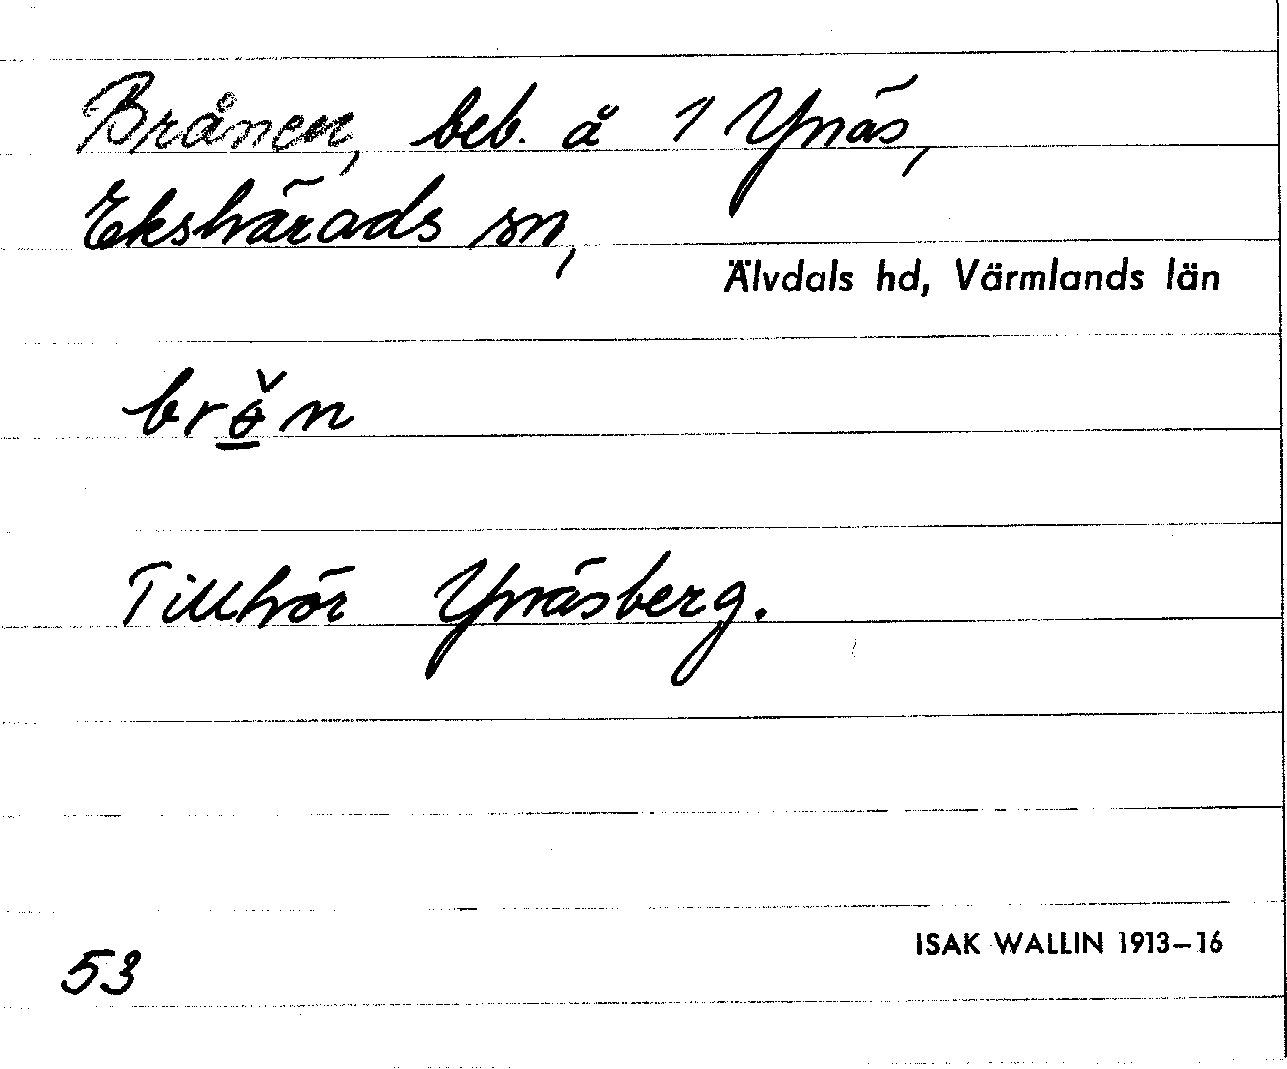 Brånen, beb. å 1 Ynäs,
Ekshärads sn,
Älvdals hd, Värmlands län
Tillhör Ynäsberg.
ISAK WALLIN 1913–16
53